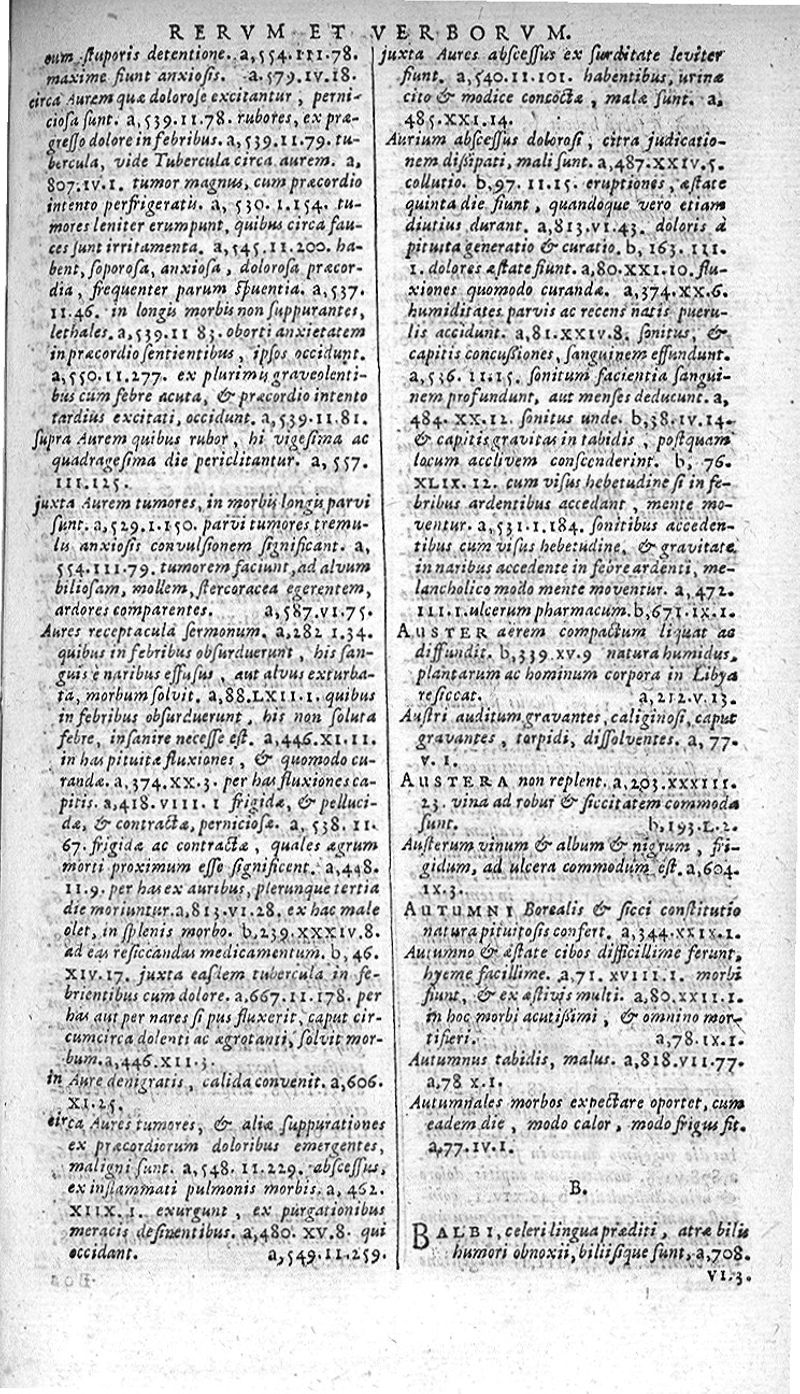 RERVM ET VERBORVM.
eum stuporis detentione. a,554.III.78.
maxime fiunt anxiosis. a.579.IV.18.
circa Aurem quæ dolorose excitantur, perni-
ciosa sunt. a,539.II.78. rubores, ex præ-
gresso dolore in febribus. a,539.II.79. tu-
bercula, vide Tubercula circa aurem. a,
807.IV.1. tumor magnus, cum præcordio
intento perfrigeratis. a, 530.I.154. tu-
mores leniter erumpunt, quibus circa fau-
ces sunt irritamenta. a,545.II.200. ha-
bent, soporosa, anxiosa, dolorosa præcor-
dia, frequenter parum spuentia. a,537.
II.46. in longis morbis non suppurantes,
lethales. a,539.II 83. oborti anxietatem
in præcordio sentientibus, ipsos occidunt.
a,550.II.277. ex plurimis graveolenti-
bus cum febre acuta, & præcordio intento
tardius excitati, occidunt. a,539.II.81.
supra Aurem quibus rubor, hi vigesima ac
quadragesima die periclitantur. a, 557.
III.125.
juxta Aurem tumores, in morbis longis parvi
sunt. a,529.I.150. parvi tumores tremu-
lis anxiosis convulsionem significant. a,
554.III.79. tumorem faciunt, ad alvum
biliosam, mollem, stercoracea egerentem,
ardores comparentes. a,587.VI.75.
Aures receptacula sermonum. a,282 I.34.
quibus in febribus obsurduerunt, his san-
guis è naribus effusus, aut alvus exturba-
ta, morbum solvit. a,88.LXII.1. quibus
in febribus obsurduerunt, his non soluta
febre, insanire necesse est. a,446.XI.11.
in has pituitæ fluxiones, & quomodo cu-
randæ. a,374.XX.3. per has fluxiones ca-
pitis. a,418.VIII. 1 frigidæ, & pelluci-
dæ, & contractæ, perniciosæ. a, 538. II.
67. frigidæ ac contractæ, quales ægrum
morti proximum esse significent. a,448.
II.9. per has ex auribus, plerunque tertia
die moriuntur. a,813.VI.28. ex hac male
olet, in splenis morbo. b,239.XXXIV.8.
ad eas resiccandas medicamentum. b,46.
XIV.17. juxta easdem tubercula in fe-
brientibus cum dolore. a,667.II.178. per
has aut per nares si pus fluxerit, caput cir-
cumcirca dolenti ac ægrotanti, solvit mor-
bum. a,446.XII.3.
in Aure denigratis, calida convenit. a,606.
XI.25.
circa Aures tumores, & aliæ suppurationes
ex præcordiorum doloribus emergentes,
maligni sunt. a,548. II.229. abscessus,
ex inflammati pulmonis morbis. a, 462.
XIIX.1. exurgunt, ex purgationibus
meracis desinentibus. a,480. XV.8. qui
occidant. a,549.II.259.
juxta Aures abscessus ex surditate leviter
fiunt. a,540.II.101. habentibus, urinæ
cito & modice concoctæ, malæ sunt. a,
485.XXI.14.
Aurium abscessus dolorosi, citra judicatio-
nem dissipati, mali sunt. a,487.XXIV.5.
collutio. b,97. II.15. eruptiones, æstate
quinta die fiunt, quandoque vero etiam
diutius durant. a,813.VI.43. doloris à
pituita generatio & curatio. b, 163. III.
1. dolores æstate fiunt. a,80.XXI.10. flu-
xiones quomodo curandæ. a,374.XX.6.
humiditates parvis ac recens natis pueru-
lis accidunt. a,81.XXIV.8. sonitus, &
capitis concussiones, sanguinem effundunt.
a,536. II.15. sonitum facientia sangui-
nem profundunt, aut menses deducunt. a,
484. XX.12. sonitus unde. b,38.IV.14.
& capitis gravitas in tabidis, postquam
locum acclivem conscenderint. b, 76.
XLIX.12. cum visus hebetudine si in fe-
bribus ardentibus accedant, mente mo-
ventur. a,531.I.184. sonitibus acceden-
tibus cum visus hebetudine, & gravitate
in naribus accedente in febre ardenti, me-
lancholico modo mente moventur. a,472.
III.1. ulcerum pharmacum. b,671.IX.1.
AUSTER aerem compactum liquat ac
diffundit. b,339.XV.9 natura humidus,
plantarum ac hominum corpora in Libya
resiccat. a,212.V.13.
Austri auditum gravantes, caliginosi, caput
gravantes, torpidi, dissolventes. a, 77.
V. 1.
AUSTERA non replent. a,203.XXXIII.
23. vina ad robur & siccitatem commoda
sunt. b,193.L.2.
Austerum vinum & album & nigrum, fri-
gidum, ad ulcera commodum est. a,604.
IX.3.
AUTUMNI Borealis & sicci constitutio
natura pituitosis confert. a,344.XXIX.1.
Autumno & æstate cibos difficillime ferunt,
hyeme facillime. a,71.XVIII.1. morbi
fiunt, & ex æstivis multi. a,80.XXII.1.
in hoc morbi acutissimi, & omnino mor-
tiferi. a,78.IX.1.
Autumnus tabidis, malus. a,818.VII.77.
a,78 X.1.
Autumnales morbos expectare oportet, cum
eadem die, modo calor, modo frigus fit.
a,77.IV.1.
B.
BALBI, celeri lingua præditi, atræ bilis
humori obnoxii, biliisique sunt, a,708.
VI.3.